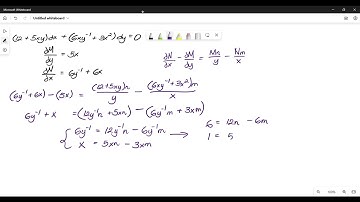 Microsoft Whiteboard
Untitled whiteboard
(12+5xy)dx + (6xy⁻¹+3x²)dy = 0
∂M/∂y = 5x
∂N/∂x = 6y⁻¹ + 6x
∂N/∂x - ∂M/∂y = Mn/y - Nm/x
(6y⁻¹+6x) - (5x) = (12+5xy)n/y - (6xy⁻¹+3x²)m/x
6y⁻¹ + x = (12y⁻¹n + 5xn) - (6y⁻¹m + 3xm)
{ 6y⁻¹ = 12y⁻¹n - 6y⁻¹m → 6 = 12n - 6m
x = 5xn - 3xm 1 = 5